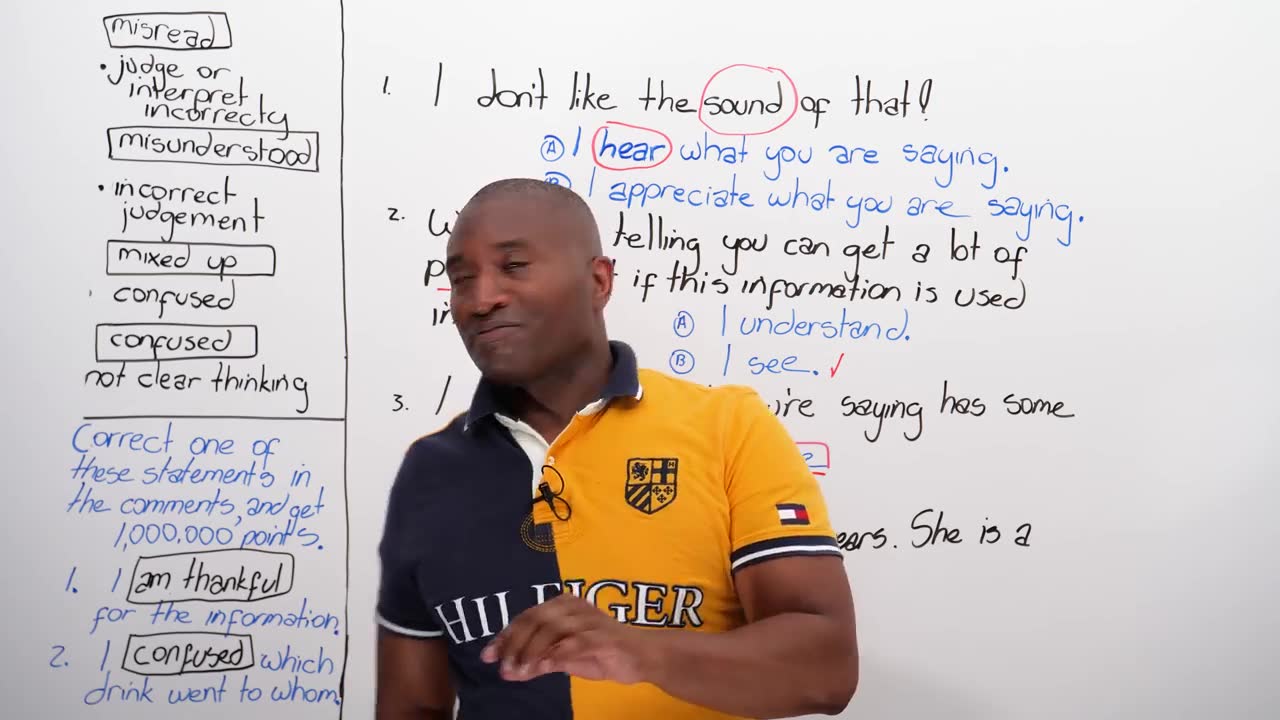 misread
• judge or
interpret
incorrecty
misunderstood
• incorrect
judgement
mixed up
confused
confused
not clear thinking
Correct one of
these statements in
the comments, and get
1,000,000 points.
1. I am thankful
for the information.
2. I confused which
drink went to whom.
1. I don't like the sound of that!
A I hear what you are saying.
I appreciate what you are saying.
2. telling you can get a lot of
if this information is used
A I understand.
B I see. ✓
3. I saying has some
She is a
HILFIGER